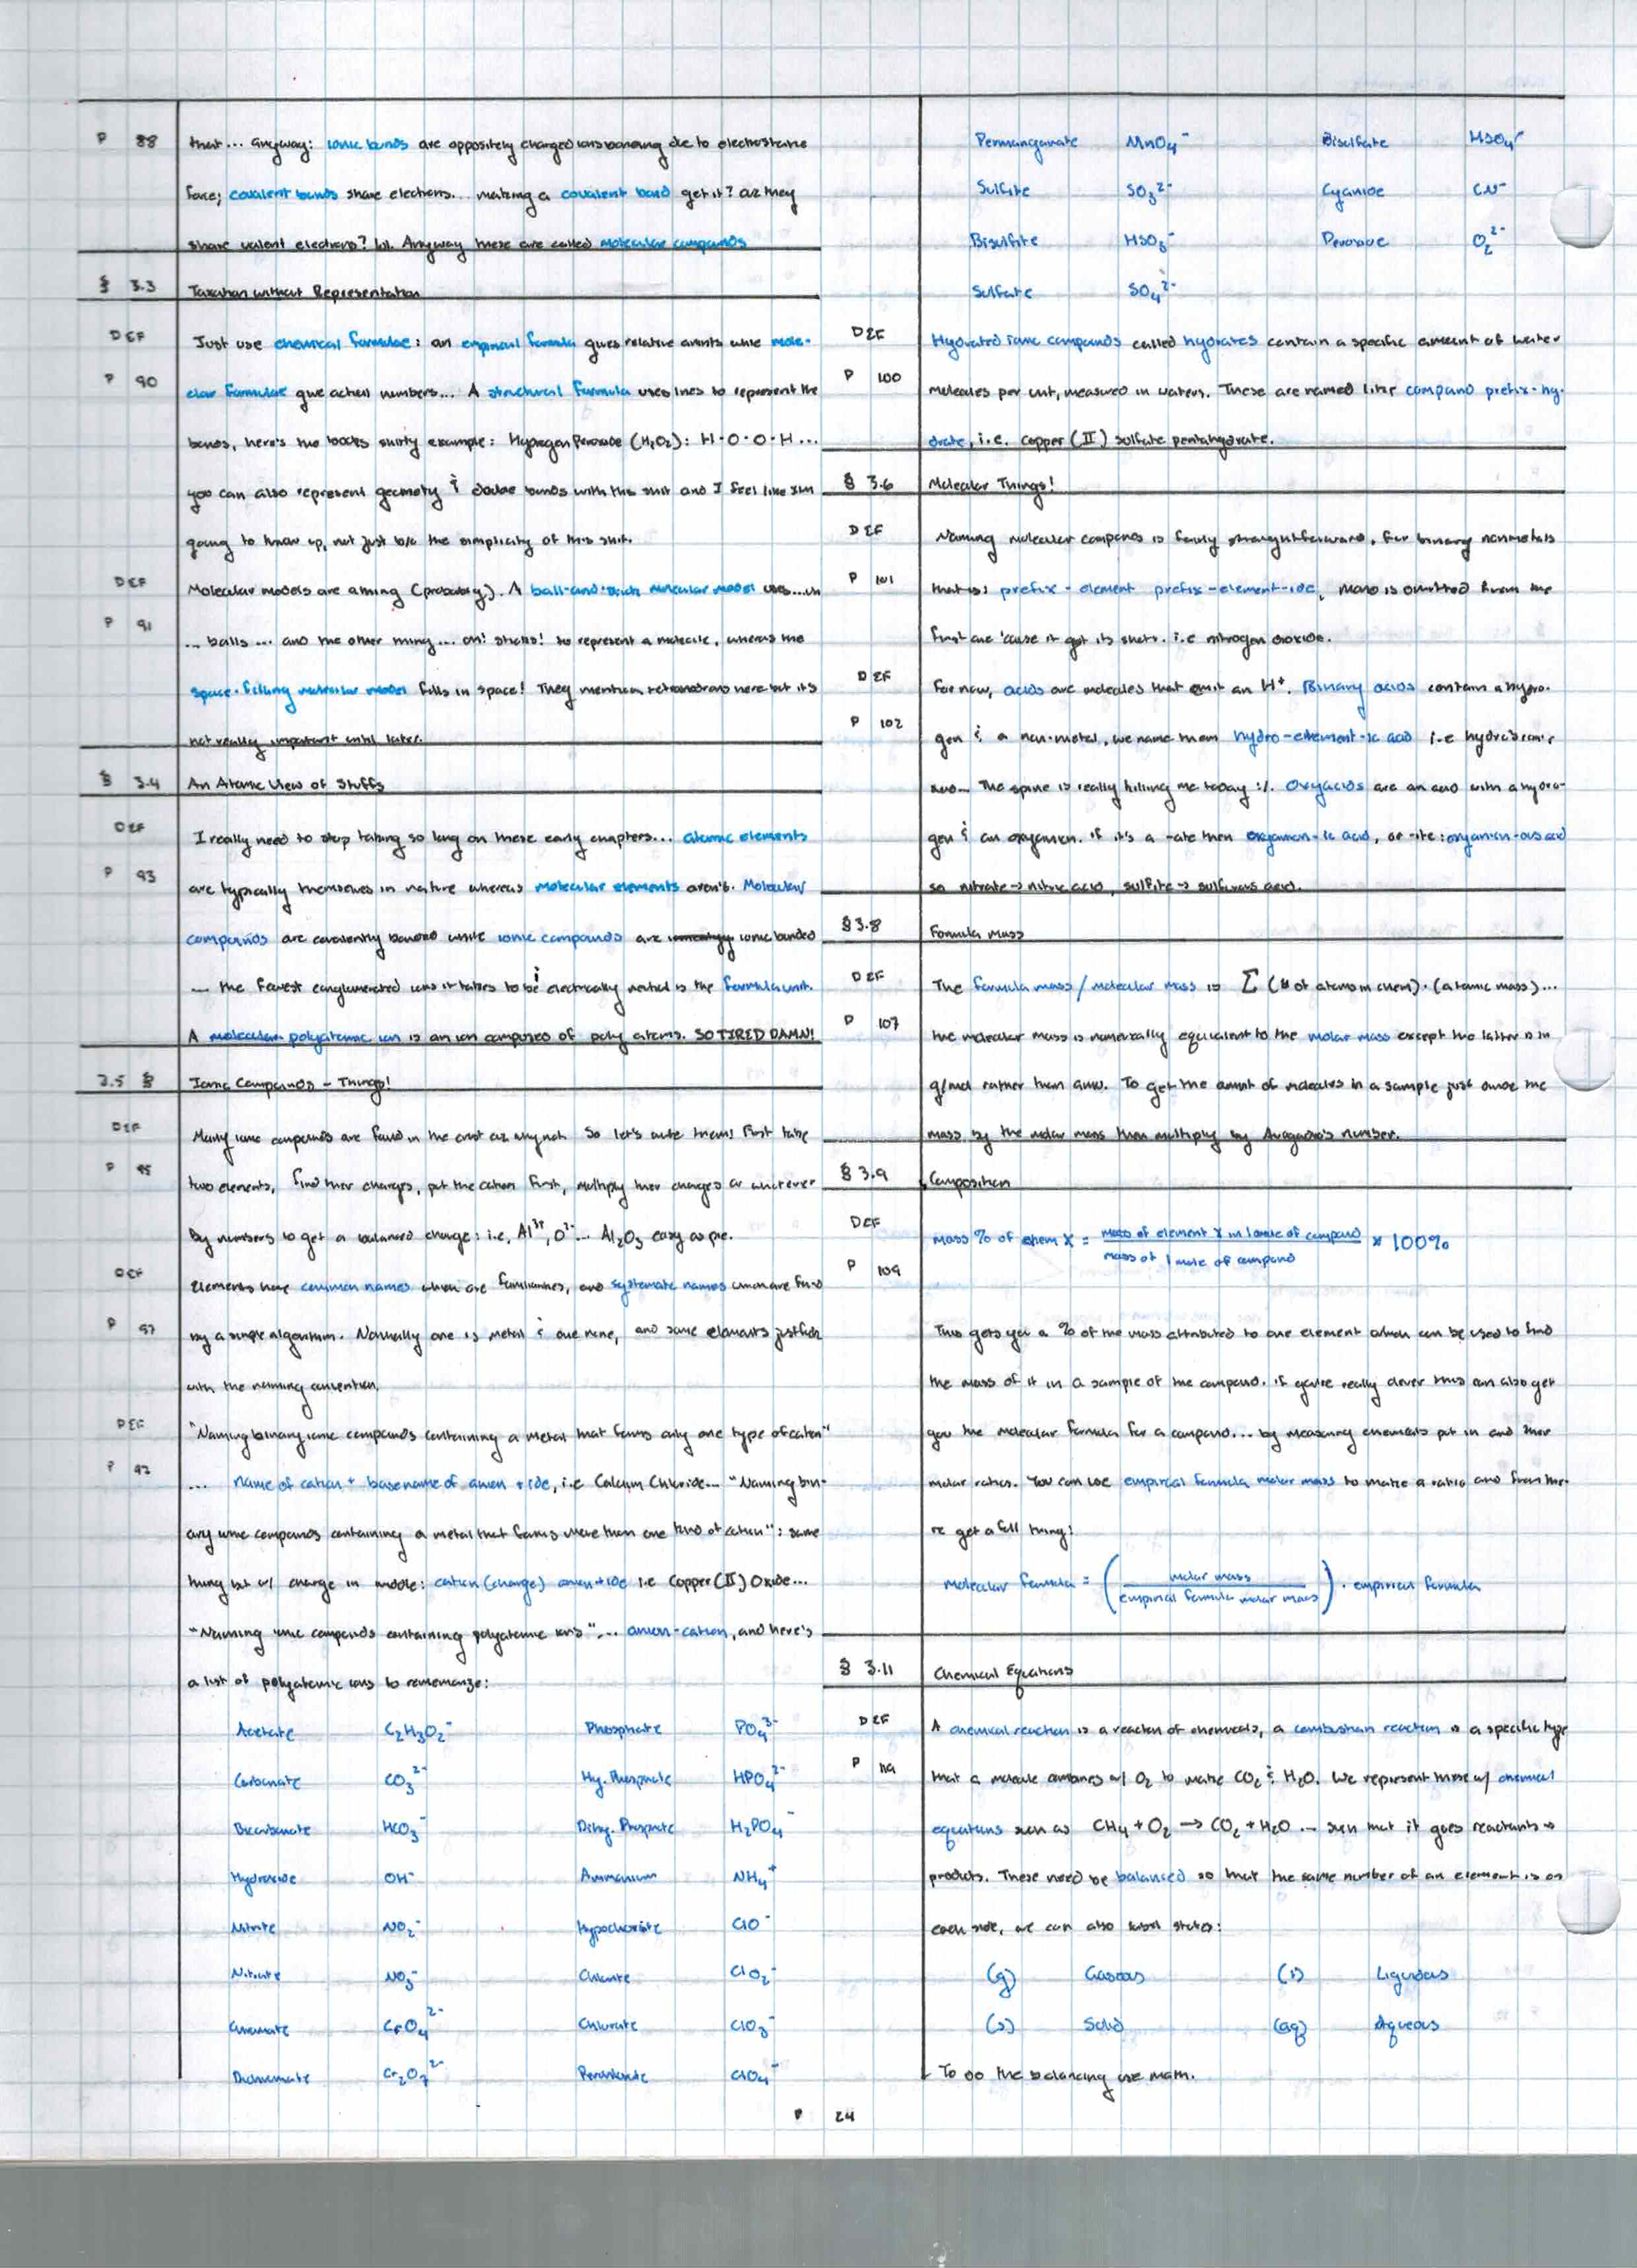 P 88 that... anyway: ionic bonds are oppositely charged ions bonding due to electrostatic
force; covalent bonds share electrons... making a covalent bond get it? az they
share valent electrons? lol. Anyway these are called molecular compounds
§ 3.3 Taxation without Representation
DEF Just use chemical formulae: an empirical formula gives relative amnts while mole-
P 90 cular formulae give actual numbers... A structural formula uses lines to represent the
bonds, here's the books shitty example: Hydrogen Peroxide (H₂O₂): H-O-O-H...
you can also represent geometry & double bonds with this shit and I feel like I'm
going to throw up, not just b/c the simplicity of this shit.
DEF Molecular models are aming (probably). A ball-and-stick molecular model uses...uh
P 91 ... balls... and the other thing... oh! sticks! to represent a molecule, whereas the
space-filling molecular model fills in space! They mention tetrahedrons here but it's
not really important until later.
§ 3.4 An Atomic View of Stuffs
DEF I really need to stop taking so long on these early chapters... atomic elements
P 93 are typically themselves in nature whereas molecular elements aren't. Molecular
compounds are covalently bonded while ionic compounds are ionic bonded
... the fewest conglomerated ions it takes to be electrically neutral is the formula unit.
A polyatomic ion is an ion composed of poly atoms. SO TIRED DAMN!
3.5 § Ionic Compounds - Things!
DEF Many ionic compounds are found in the crust az why not. So let's write them! First take
P 95 two elements, find their charges, put the cation first, multiply their charges or whatever
by numbers to get a balanced charge: i.e, Al³⁺, O²⁻... Al₂O₃ easy as pie.
DEF Elements have common names which are familiarines, and systematic names which are found
P 97 by a simple algorithm. Normally one is metal & one none, and some elements just fuck
with the naming convention.
DEF "Naming binary ionic compounds containing a metal that forms only one type of cation"
P 92 ... name of cation + base name of anion + ide, i.e Calcium Chloride... "Naming bin-
ary ionic compounds containing a metal that forms more than one kind of cation": same
thing but w/ charge in middle: cation (charge) anion + ide i.e Copper (II) Oxide...
"Naming ionic compounds containing polyatomic ions"... anion-cation, and here's
a list of polyatomic ions to rememorize:
Acetate C₂H₃O₂⁻ Phosphate PO₄³⁻
Carbonate CO₃²⁻ Hy. Phosphate HPO₄²⁻
Bicarbonate HCO₃⁻ Dihy. Phosphate H₂PO₄⁻
Hydroxide OH⁻ Ammonium NH₄⁺
Nitrite NO₂⁻ Hypochlorite ClO⁻
Nitrate NO₃⁻ Chlorite ClO₂⁻
Chromate CrO₄²⁻ Chlorate ClO₃⁻
Dichromate Cr₂O₇²⁻ Perchlorate ClO₄⁻
Permanganate MnO₄⁻ Bisulfate HSO₄⁻
Sulfite SO₃²⁻ Cyanide CN⁻
Bisulfite HSO₃⁻ Peroxide O₂²⁻
Sulfate SO₄²⁻
DEF Hydrated ionic compounds called hydrates contain a specific amount of water
P 100 molecules per unit, measured in waters. These are named like compound prefix-hy-
drate, i.e. copper (II) sulfate pentahydrate.
§ 3.6 Molecular Things!
DEF Naming molecular compounds is fairly straightforward, for binary nonmetals
P 101 that is: prefix-element prefix-element-ide, mono is omitted from the
first one 'cause it got its shots. i.e nitrogen dioxide.
DEF For now, acids are molecules that emit an H⁺. Binary acids contain a hydro-
P 102 gen & a non-metal, we name them hydro-element-ic acid i.e hydrobromic
acid... The spine is really killing me today :/. Oxyacids are an acid with a hydro-
gen & an oxyanion. if it's a -ate then oxyanion-ic acid, or -ite: oxyanion-ous acid
so nitrate → nitric acid, sulfite → sulfurous acid.
§ 3.8 Formula Mass
DEF The formula mass / molecular mass is Σ (# of atoms in chem) · (atomic mass)...
P 107 the molecular mass is numerically equivalent to the molar mass except the latter is in
g/mol rather than amu. To get the amnt of molecules in a sample just divide the
mass by the molar mass then multiply by Avogadro's number.
§ 3.9 Composition
DEF mass % of chem X = mass of element X in 1 mole of compound / mass of 1 mole of compound × 100%
P 109
This gets you a % of the mass attributed to one element which can be used to find
the mass of it in a sample of the compound. if you're really clever this can also get
you the molecular formula for a compound... by measuring chemicals put in and their
molar ratios. You can use empirical formula molar mass to make a ratio and from the-
re get a full thing!
molecular formula = (molar mass / empirical formula molar mass) · empirical formula
§ 3.11 Chemical Equations
DEF A chemical reaction is a reaction of chemicals, a combustion reaction is a specific type
P 119 that a molecule combines w/ O₂ to make CO₂ & H₂O. We represent these w/ chemical
equations such as CH₄ + O₂ → CO₂ + H₂O ... such that it goes reactants →
products. These need be balanced so that the same number of an element is on
each side, we can also label states:
(g) Gaseous (l) Liquidous
(s) Solid (aq) Aqueous
To do the balancing use math.
P 24